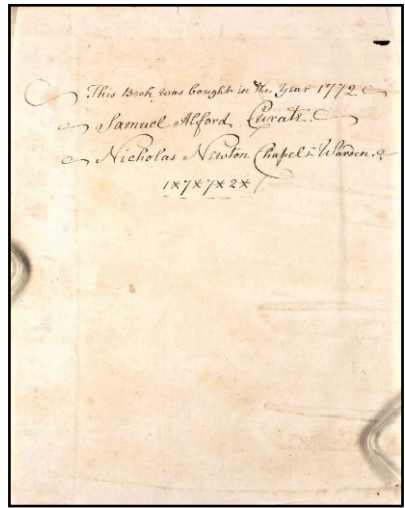 This Book was bought in the Year 1772
Samuel Alford Curate.
Nicholas Newton Chapel-Warden.
1*7*7*2*